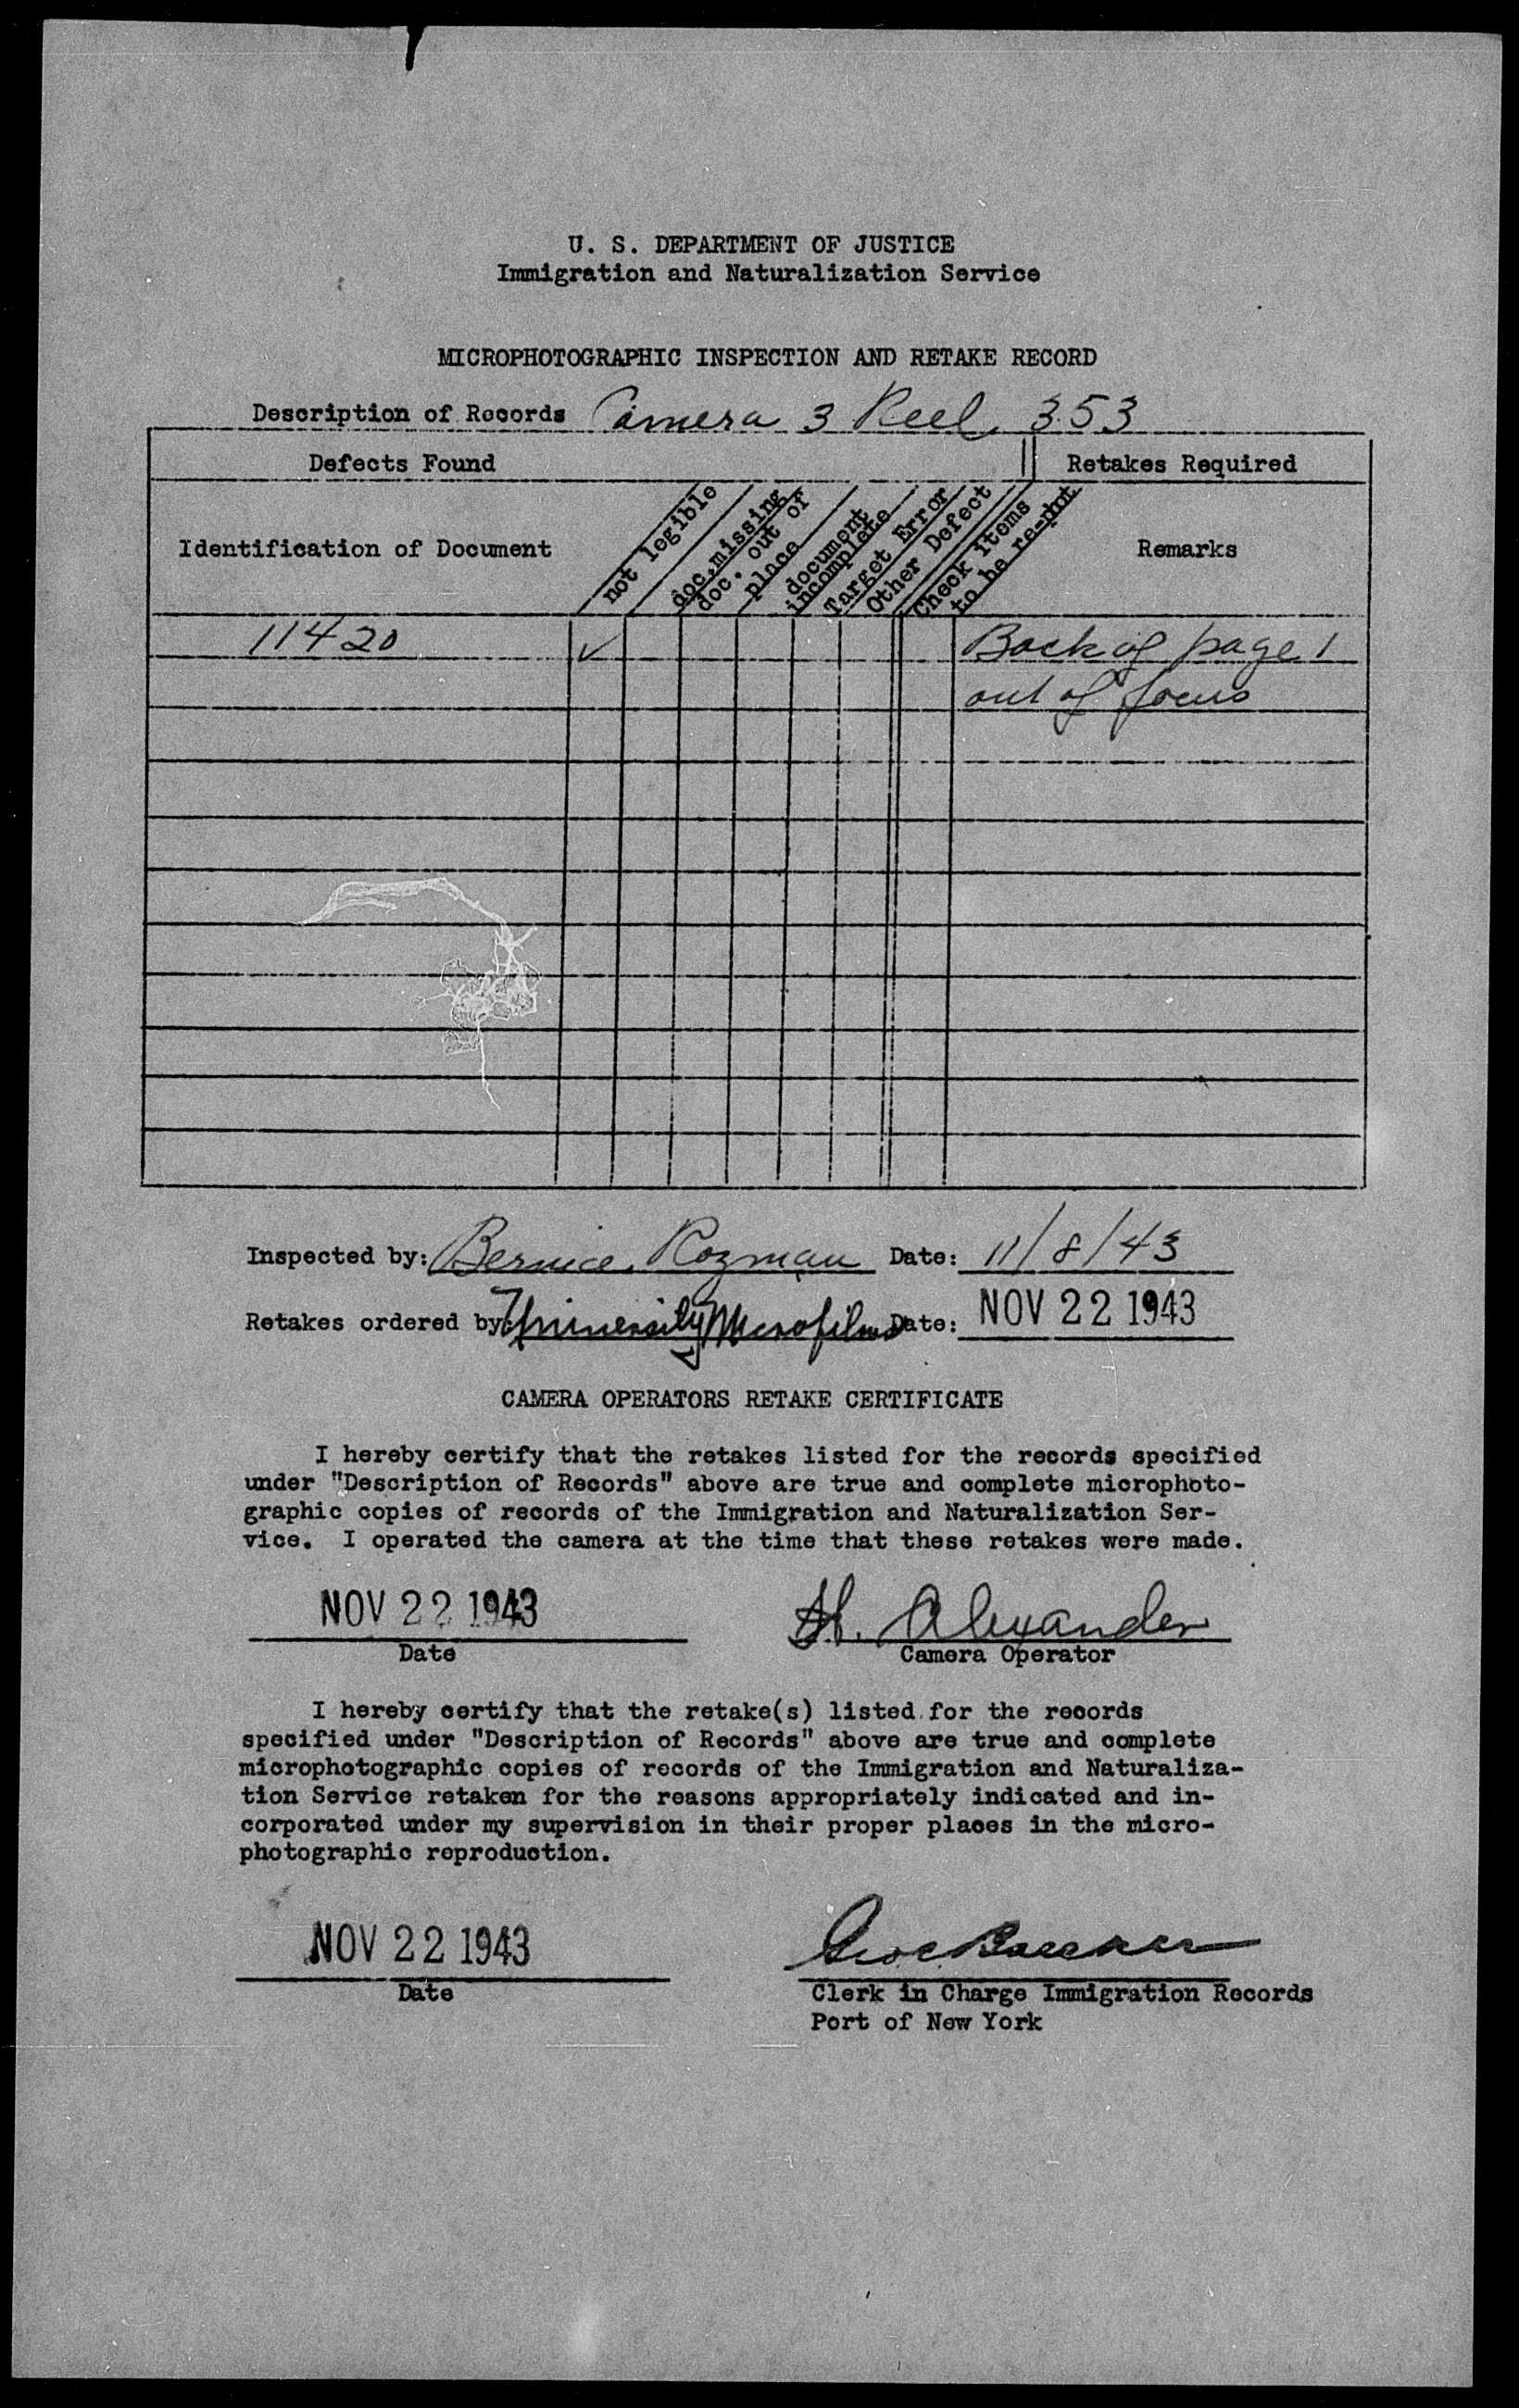 U. S. DEPARTMENT OF JUSTICE
Immigration and Naturalization Service
MICROPHOTOGRAPHIC INSPECTION AND RETAKE RECORD
Description of Records Camera 3 Reel 353
Defects Found
Retakes Required
Identification of Document
not legible
doc. missing
doc. out of
place
document
incomplete
Target Error
Other Defect
Check items
to be re-phot
Remarks
11420 ✓ Back of page 1
out of focus
Inspected by: Bernice Rozman Date: 11/8/43
Retakes ordered by: University Microfilms Date: NOV 22 1943
CAMERA OPERATORS RETAKE CERTIFICATE
I hereby certify that the retakes listed for the records specified
under "Description of Records" above are true and complete microphoto-
graphic copies of records of the Immigration and Naturalization Ser-
vice. I operated the camera at the time that these retakes were made.
NOV 22 1943 H. Alexander
Date Camera Operator
I hereby certify that the retake(s) listed for the records
specified under "Description of Records" above are true and complete
microphotographic copies of records of the Immigration and Naturaliza-
tion Service retaken for the reasons appropriately indicated and in-
corporated under my supervision in their proper places in the micro-
photographic reproduction.
NOV 22 1943
Date Clerk in Charge Immigration Records
Port of New York